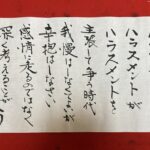 ハラスメントが
ハラスメントを
主張して争う時代
我慢はしなくてよいが
辛抱はしなさい
感情に走るのではなく
深く考えることが